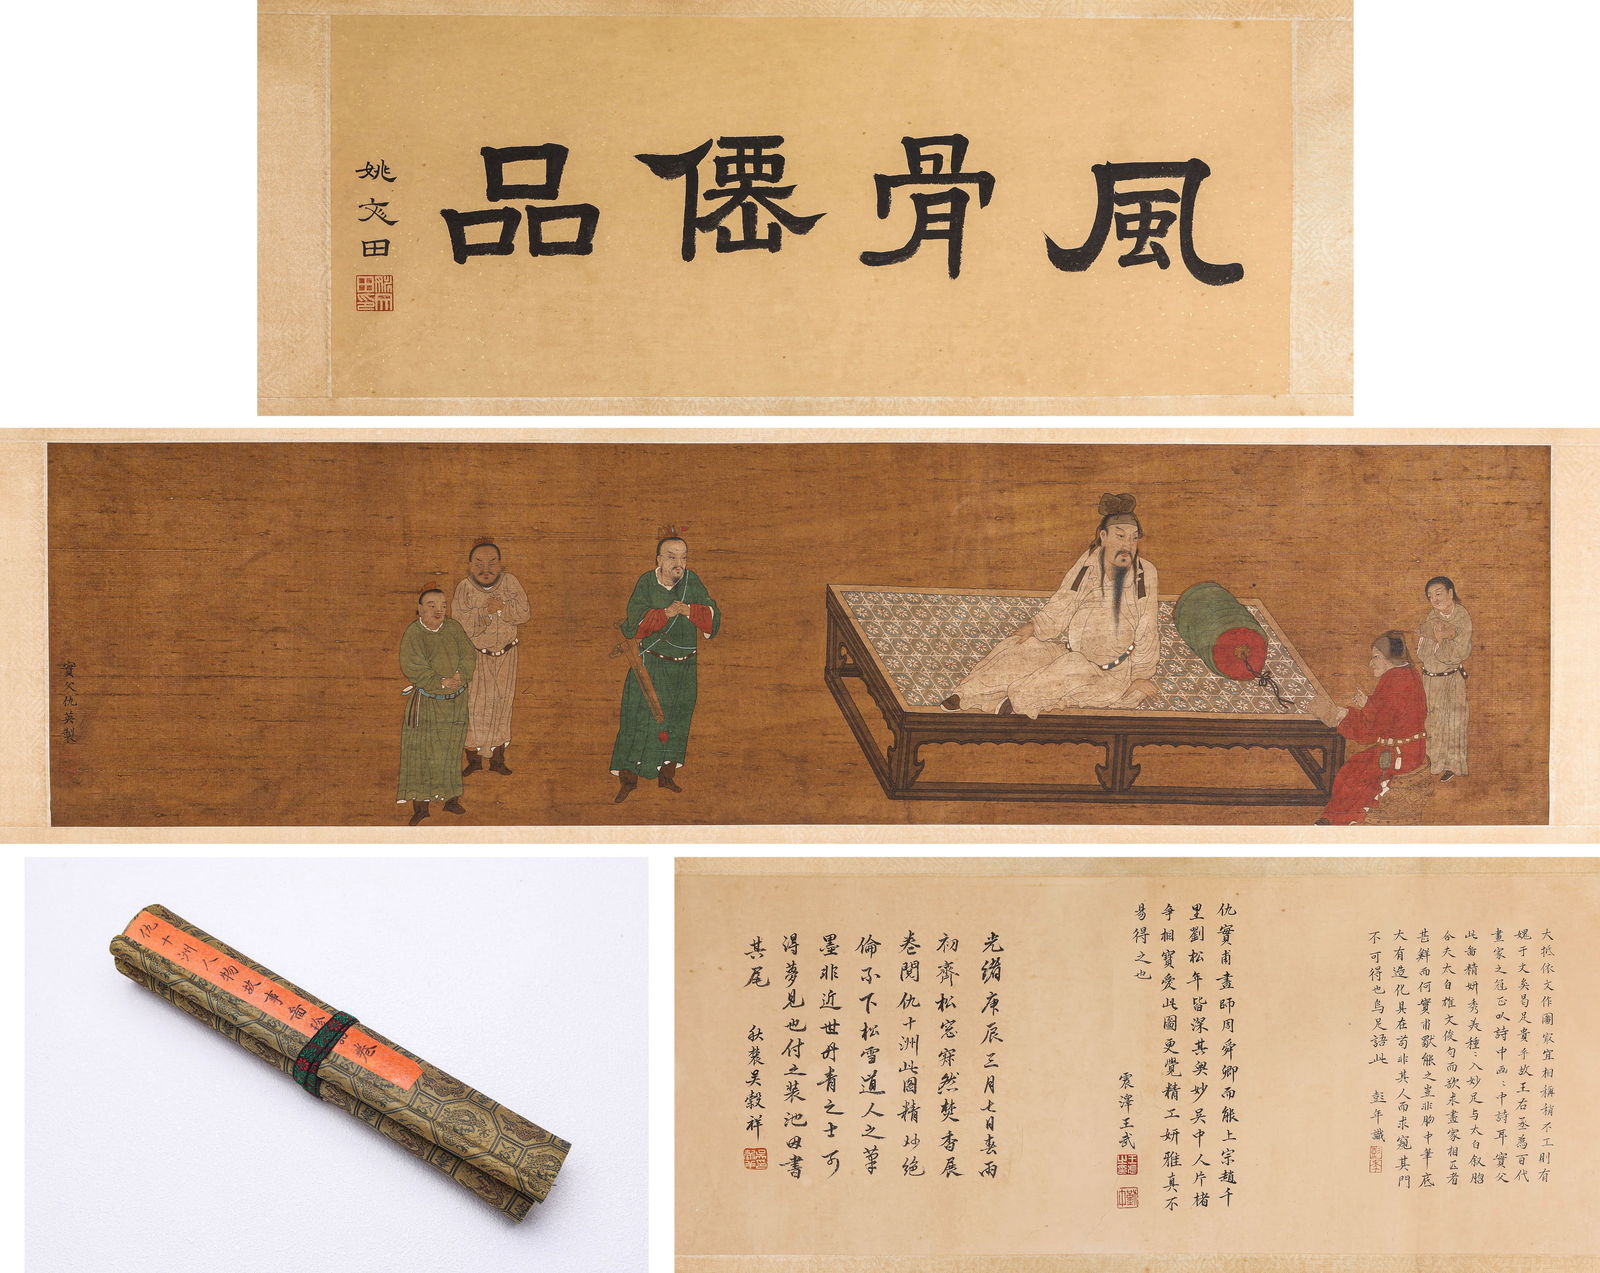 風骨僊品
姚文田
實父仇英製
仇十洲人物故事圖
卷
大抵依文作圖最宜相稱稍不工則有
媿于文矣曷足貴乎故王右丞為百代
畫家之冠正以詩中画〻中詩耳實父
此圖精妍秀美種〻入妙足与太白叙
今夫太白雄文俊句而欲求畫家相匹者
甚鮮而何實甫獸能之豈非胸中筆底
大有造化具在苟非其人而求窺其門
不可得也烏足語此
彭年識
仇實甫畫師周舜卿而能上宗趙千
里劉松年皆深其奥妙吴中人片楮
争相寶愛此圖更覺精工妍雅真不
易得之也
震澤王武
光緒庚辰三月七日春雨
初霽松窓寂然焚香展
卷閱仇十洲此圖精妙絶
倫不下松雪道人之筆
墨非近世丹青之士可
得夢見也付之装池毋書
其尾
秋農吴穀祥